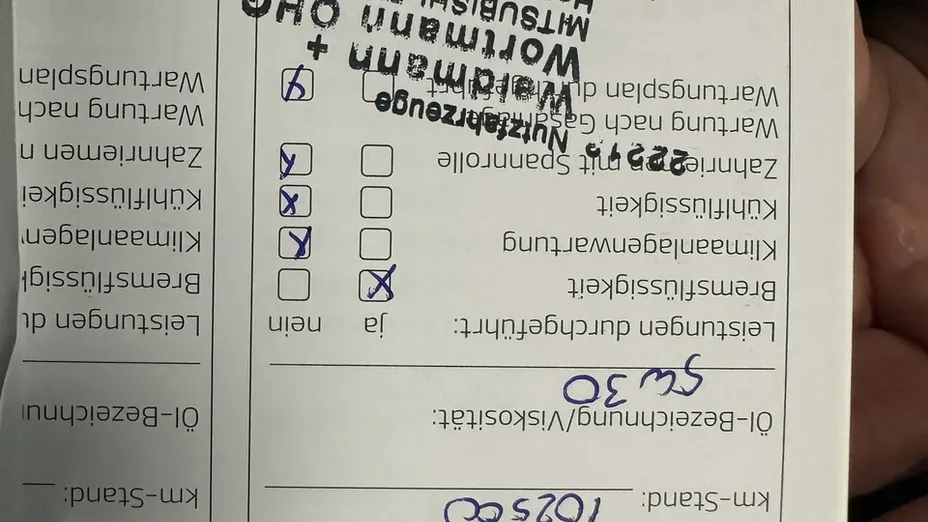 km-Stand: 102500
Öl-Bezeichnung/Viskosität:
5w30
Leistungen durchgeführt: ja nein
Bremsflüssigkeit
Klimaanlagenwartung
Kühlflüssigkeit
Zahnriemen mit Spannrolle
Wartung nach
Wartungsplan durchgeführt
Nutzfahrzeuge
Waldmann +
Wortmann OHG
MITSUBISHI
km-Stand:
Öl-Bezeichnu
Leistungen du
Bremsflüssigk
Klimaanlagen
Kühlflüssigkei
Zahnriemen
Wartung nach
Wartungsplan